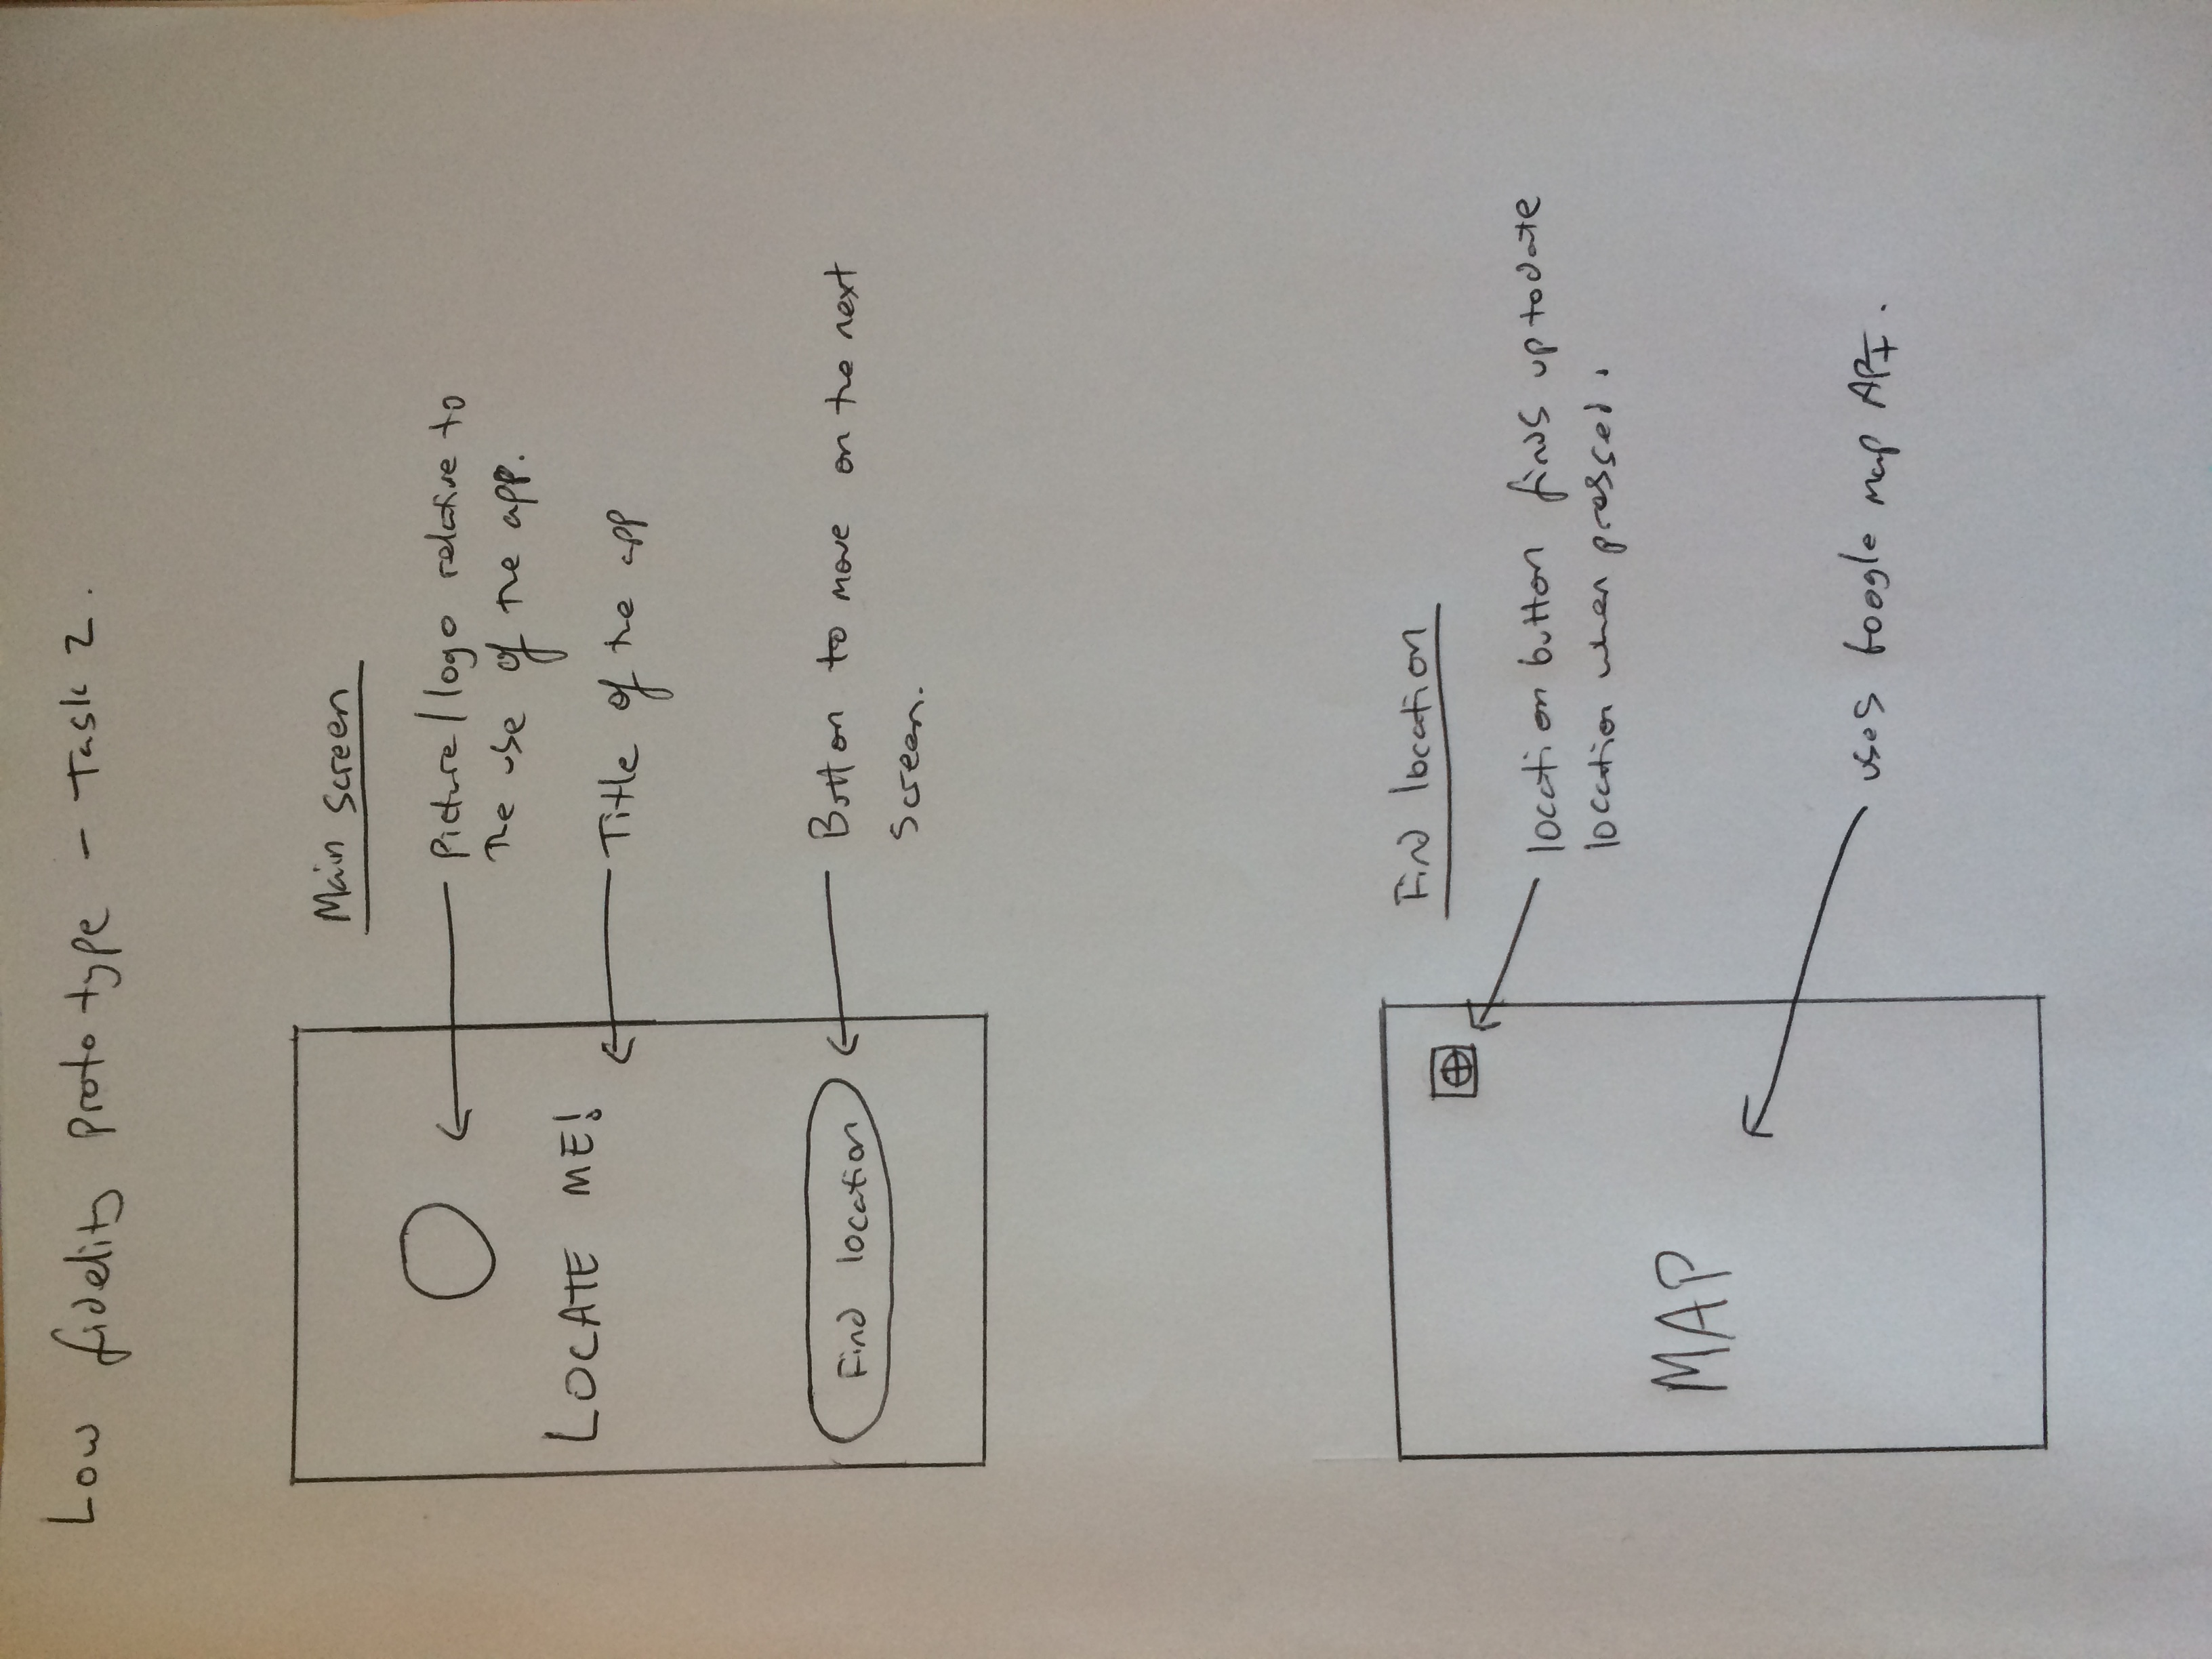 Low fidelity prototype - Task 2.
Main Screen
LOCATE ME!
Find location
Picture/logo relative to
the use of the app.
Title of the app
Button to move on the next
screen.
Find location
MAP
location button finds up to date
location when pressed.
uses Google map API.